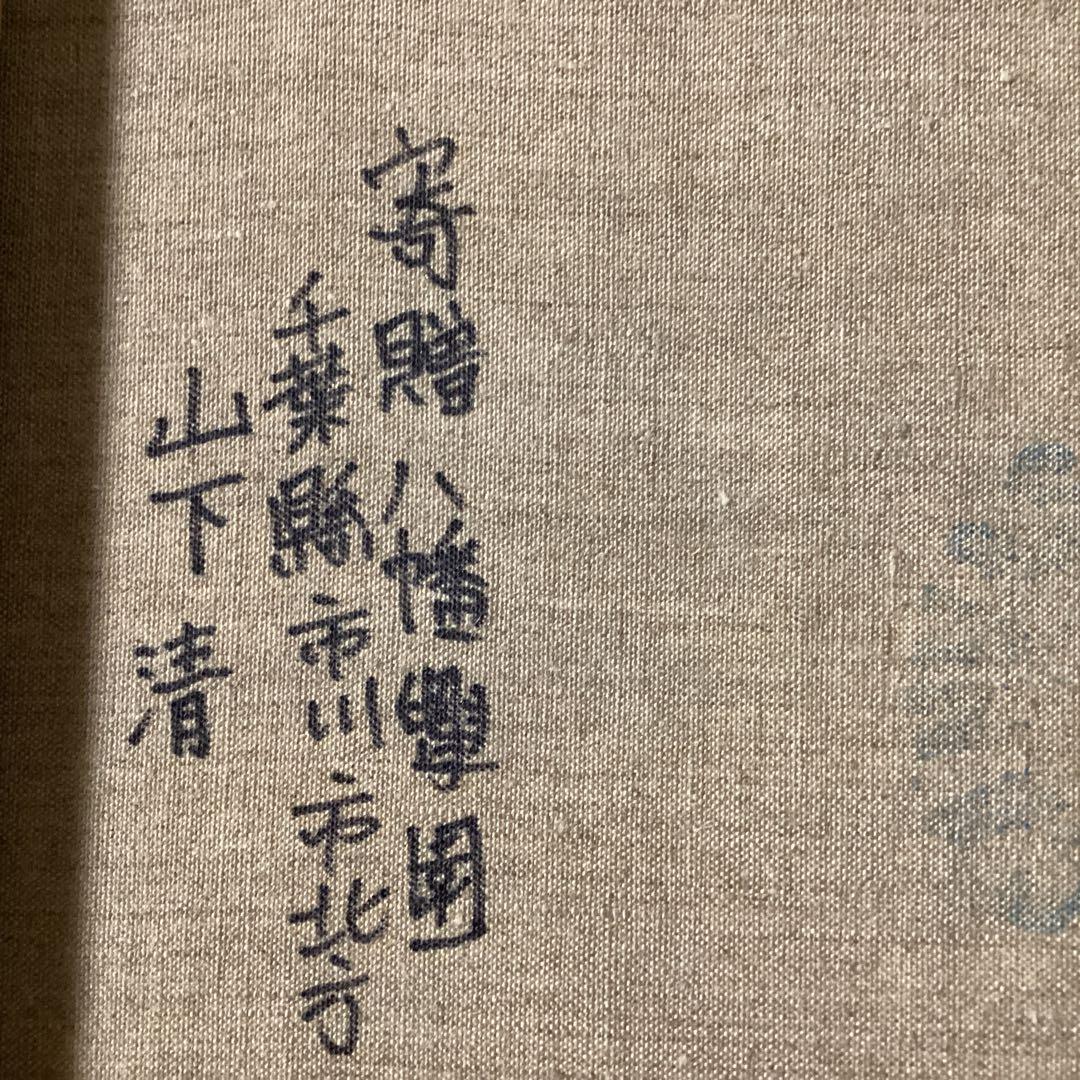 寄贈 八幡學園
千葉縣市川市北方
山下清